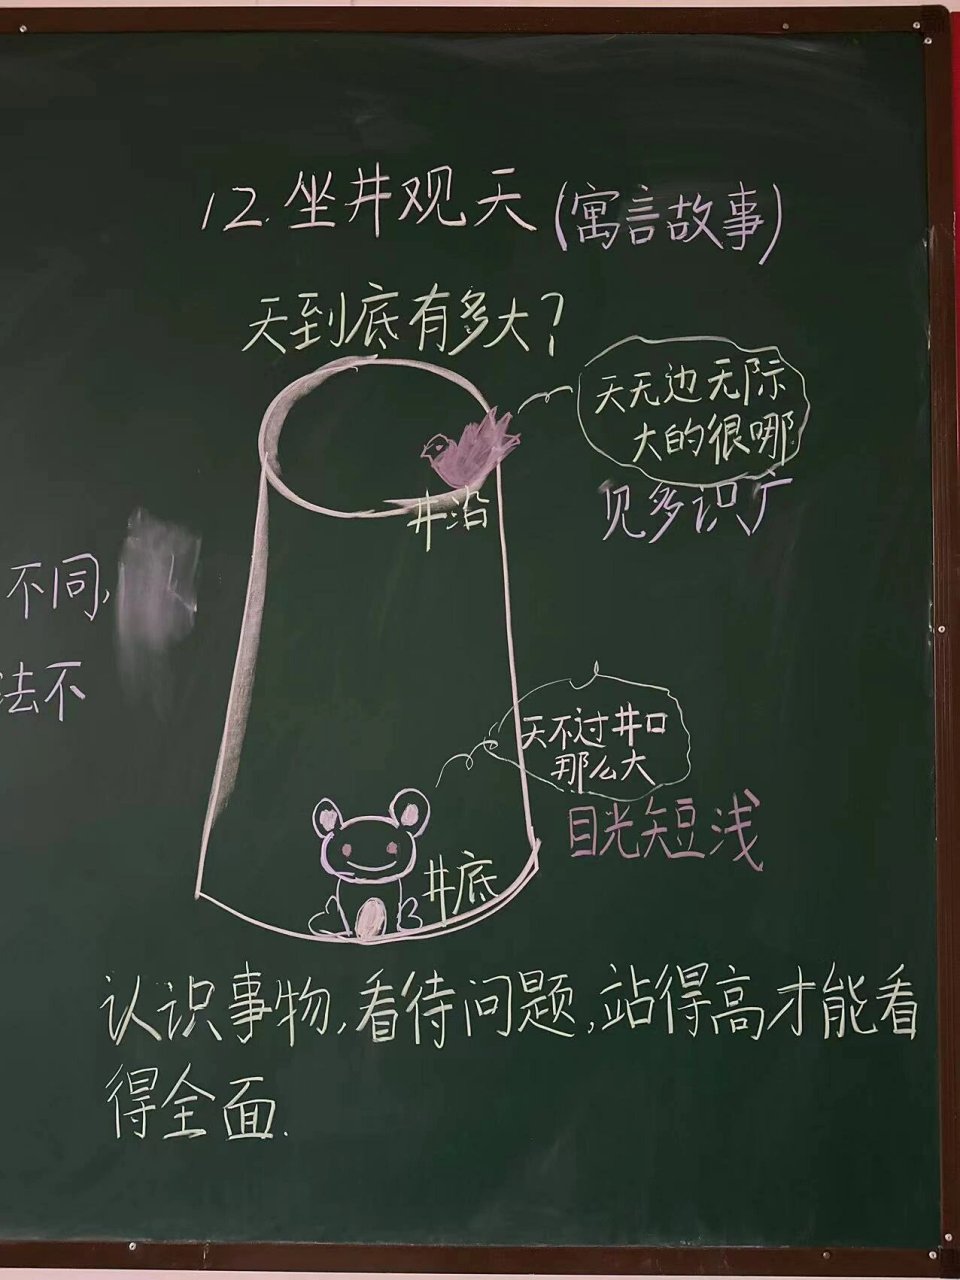 12.坐井观天(寓言故事)
天到底有多大?
天无边无际
大的很哪
见多识广
井沿
不同,
法不
天不过井口
那么大
目光短浅
井底
认识事物,看待问题,站得高才能看
得全面.